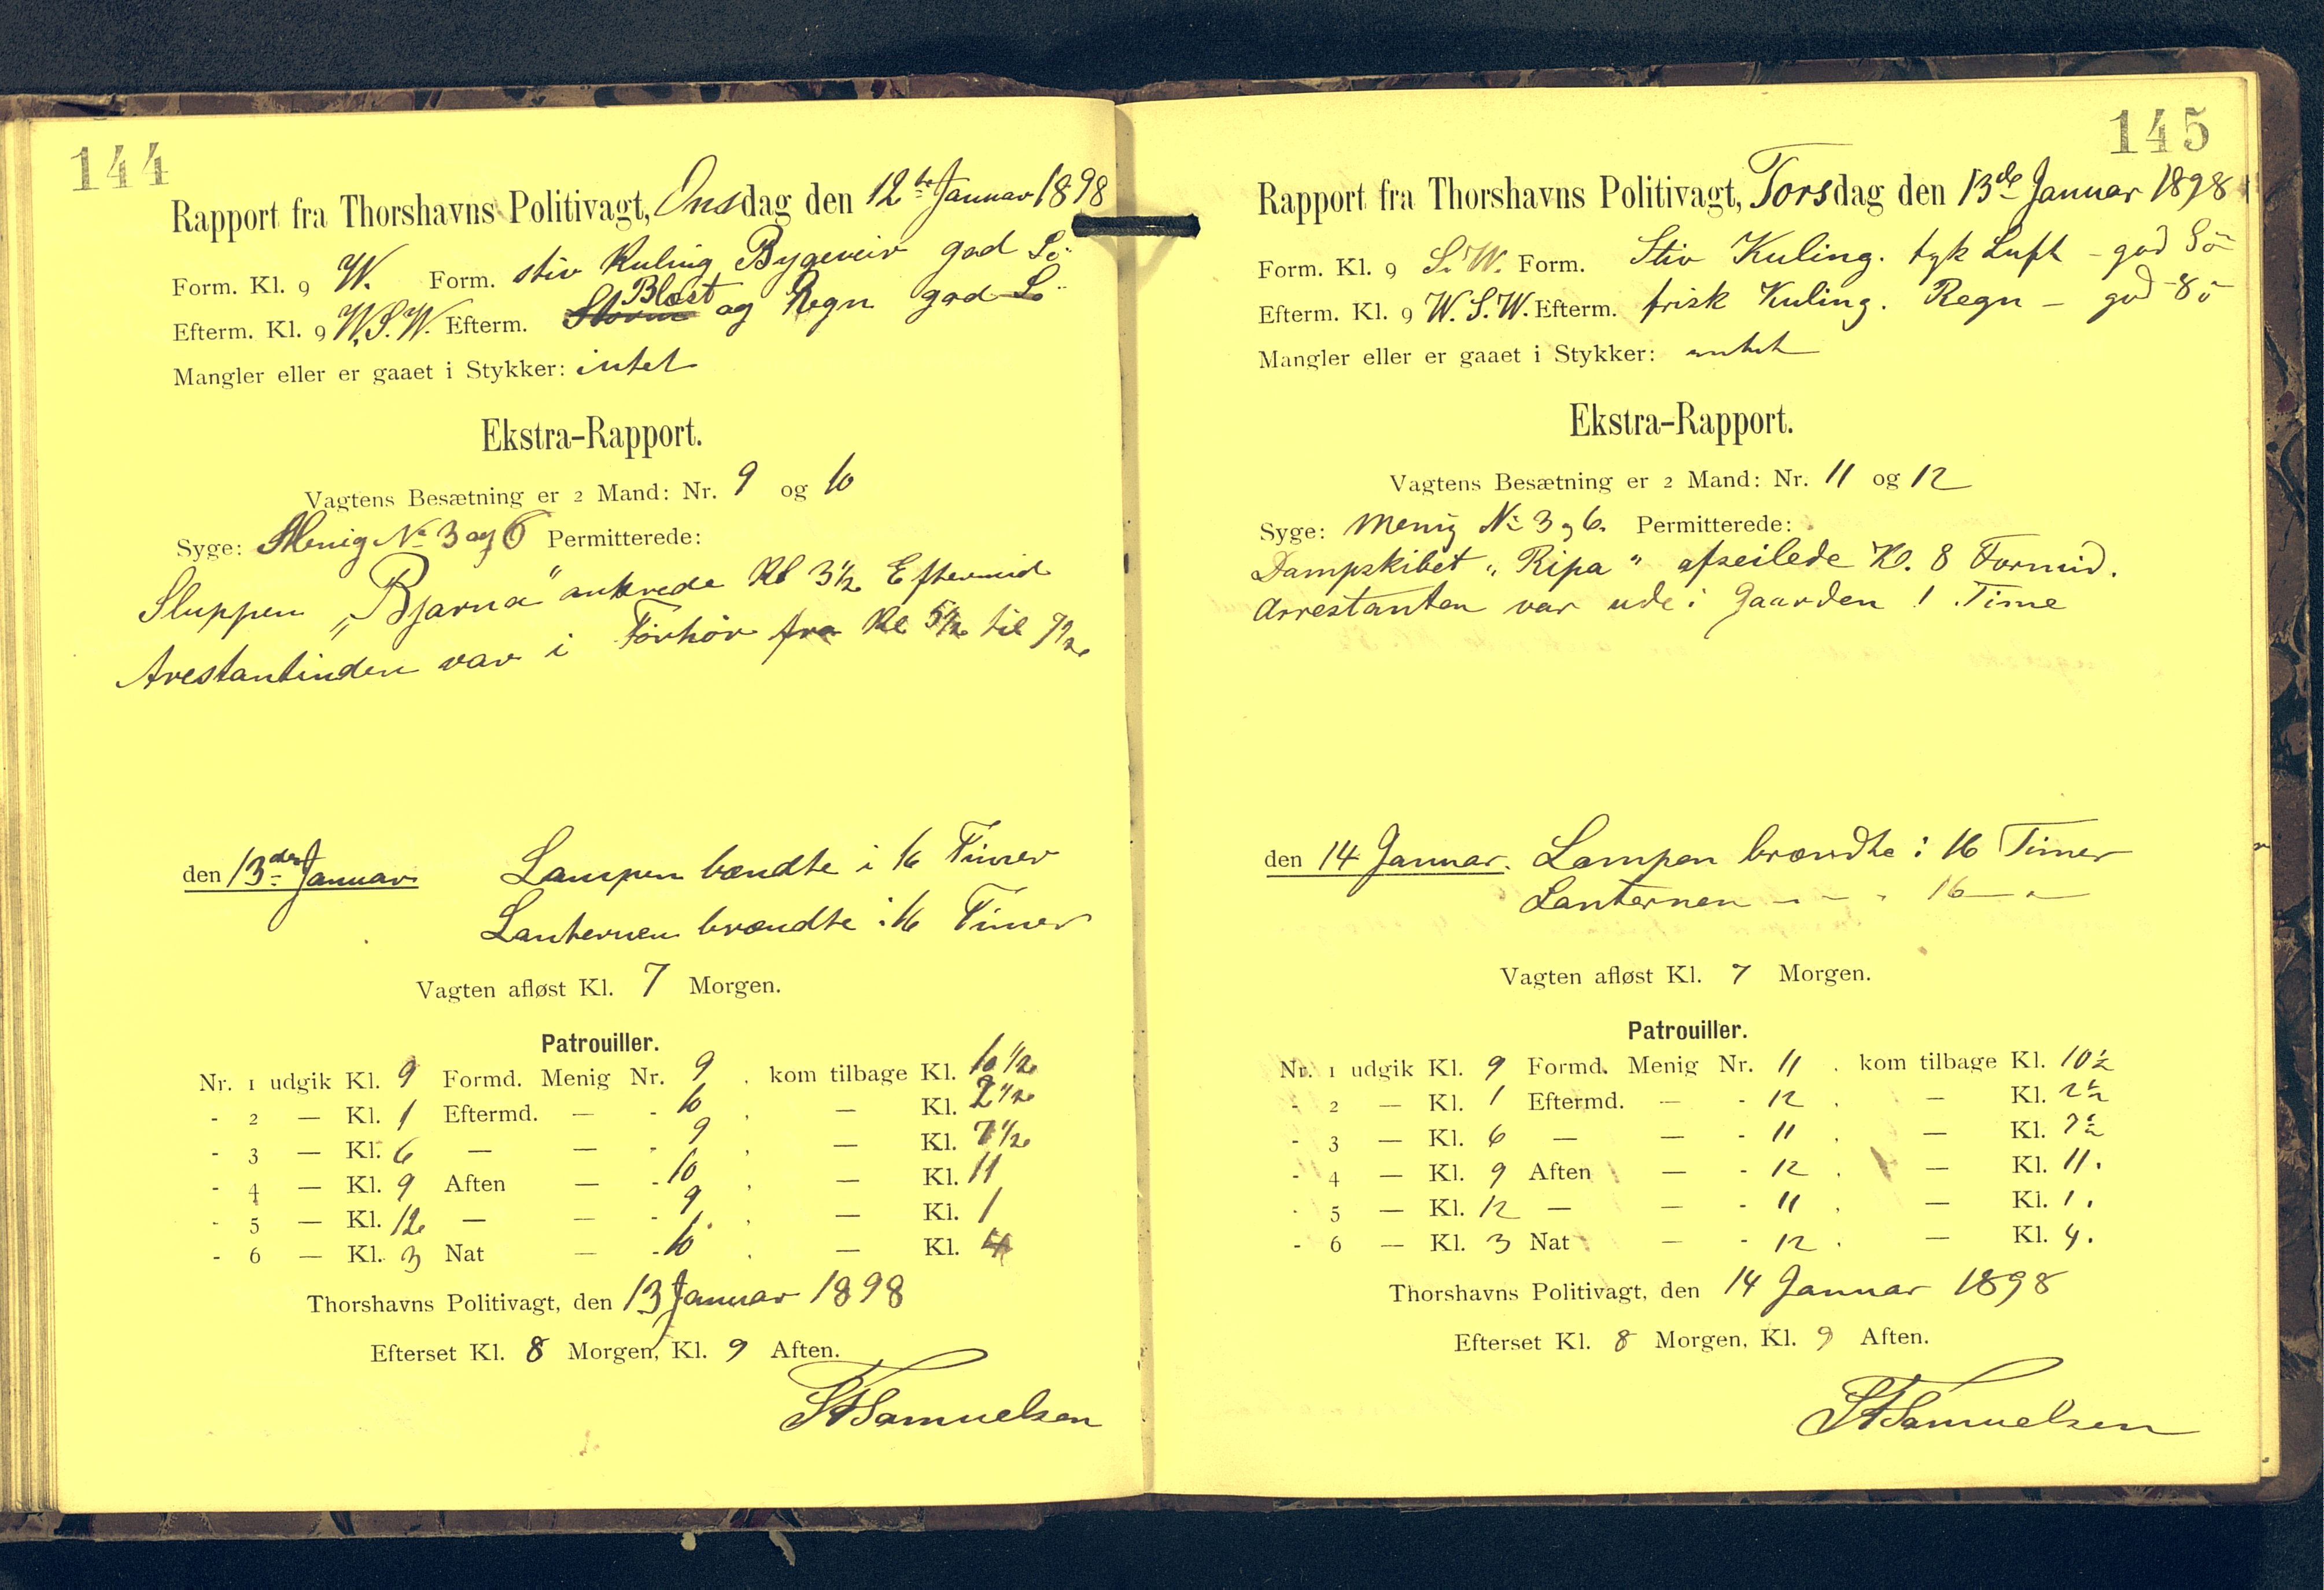 144
Rapport fra Thorshavns Politivagt, Onsdag den 12te Januar 1898
Form. Kl. 9 W. Form. stiv Kuling Bygeveir god Sö
Efterm. Kl. 9 W.S.W. Efterm. Storm Blæst og Regn god Sö
Mangler eller er gaaet i Stykker: intet
Ekstra-Rapport.
Vagtens Besætning er 2 Mand: Nr. 9 og 10
Syge: Menig No 3 og 6 Permitterede:
Sluppen „Bjarna" ankrede Kl 3½ Eftermid
Arestantinden var i Forhör fra Kl 5½ til 7½
den 13de Januar Lampen bændte i 16 Timer
Lanternen brændte i 16 Timer
Vagten afløst Kl. 7 Morgen.
Patrouiller.
Nr. 1 udgik Kl. 9 Formd. Menig Nr. 9 . kom tilbage Kl. 10 1/2
- 2 — Kl. 1 Eftermd. — - 10 . — Kl. 2 1/2
- 3 — Kl. 6 — — - 9 . — Kl. 7 1/2
- 4 — Kl. 9 Aften — - 10 . — Kl. 11
- 5 — Kl. 12 — — - 9 . — Kl. 1
- 6 — Kl. 3 Nat — - 10 . — Kl. 4
Thorshavns Politivagt, den 13 Januar 1898
Efterset Kl. 8 Morgen, Kl. 9 Aften.
Samuelsen
145
Rapport fra Thorshavns Politivagt, Torsdag den 13de Januar 1898
Form. Kl. 9 S.W. Form. Stiv Kuling. tyk Luft – god Sö
Efterm. Kl. 9 W.S.W. Efterm. frisk Kuling. Regn – god Sö
Mangler eller er gaaet i Stykker: intet
Ekstra-Rapport.
Vagtens Besætning er 2 Mand: Nr. 11 og 12
Syge: Menig No 3 og 6. Permitterede:
Dampskibet „Ripa" afseilede Kl. 8 Formid.
Arrestanten var ude i Gaarden 1 Time
den 14 Januar. Lampen brændte i 16 Timer
Lanternen - - - 16 — -
Vagten afløst Kl. 7 Morgen.
Patrouiller.
Nr. 1 udgik Kl. 9 Formd. Menig Nr. 11 . kom tilbage Kl. 10½
- 2 — Kl. 1 Eftermd. — - 12 . — Kl. 2½
- 3 — Kl. 6 — — - 11 . — Kl. 7½
- 4 — Kl. 9 Aften — - 12 . — Kl. 11.
- 5 — Kl. 12 — — - 11 . — Kl. 1.
- 6 — Kl. 3 Nat — - 12 . — Kl. 4.
Thorshavns Politivagt, den 14 Januar 1898
Efterset Kl. 8 Morgen, Kl. 9 Aften.
Samuelsen